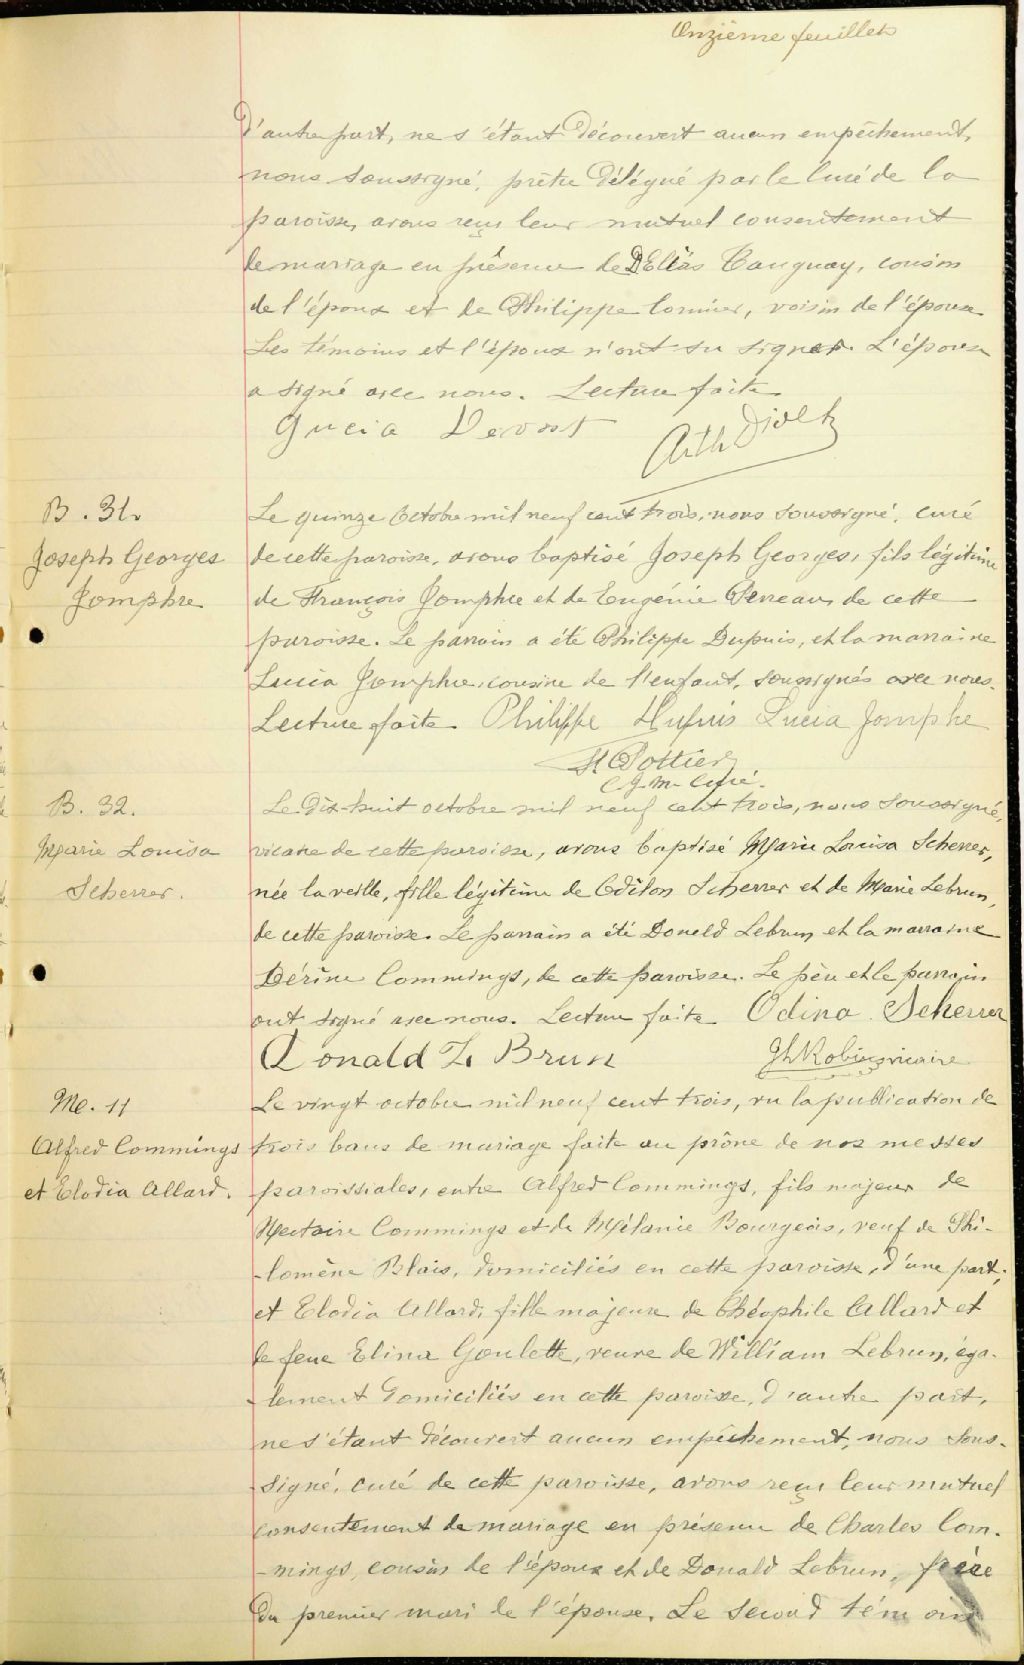 Onzième feuillet
d'autre part, ne s'étant découvert aucun empêchement,
nous soussigné, prêtre délégué par le Curé de la
paroisse, avons reçu leur mutuel consentement
de mariage en présence de Elias Tanguay, cousin
de l'époux et de Philippe Cormier, voisin de l'épouse
Les témoins et l'époux n'ont su signer. L'épouse
a signé avec nous. Lecture faite
Lucia Devost
B. 31.
Joseph Georges
Jomphre
Le quinze Octobre mil neuf cent trois, nous soussigné, curé
de cette paroisse, avons baptisé Joseph Georges, fils légitime
de François Jomphre et de Eugénie de cette
paroisse. Le parrain a été Philippe Dupuis, et la marraine
Lucia Jomphre, cousine de l'enfant, soussignés avec nous.
Lecture faite Philippe Dupuis Lucia Jomphe
H Pottier
c.j.m. Curé.
B. 32.
Marie Louisa
Scherrer.
Le dix-huit octobre mil neuf cent trois, nous soussigné,
vicaire de cette paroisse, avons baptisé Marie Louisa Scherrer,
née la veille, fille légitime de Odilon Scherrer et de Marie Lebrun,
de cette paroisse. Le parrain a été Donald Lebrun et la marraine
Commings, de cette paroisse. Le père et le parrain
ont signé avec nous. Lecture faite Odina Scherrer
Donald Le Brun vicaire
Me. 11
Alfred Commings
et Elodia Allard.
Le vingt octobre mil neuf cent trois, vu la publication de
trois bans de mariage faite au prône de nos messes
paroissiales, entre Alfred Commings, fils majeur de
Nectaire Commings et de Mélanie Bourgeois, veuf de Phi-
-lomène Blais, domiciliés en cette paroisse, d'une part;
et Elodia Allard, fille majeure de Théophile Allard et
de feue Elina Goulette, veuve de William Lebrun, éga-
-lement domiciliés en cette paroisse, d'autre part,
ne s'étant découvert aucun empêchement, nous sous-
-signé, curé de cette paroisse, avons reçu leur mutuel
consentement de mariage en présence de Charles Com-
-mings, cousin de l'époux et de Donald Lebrun, frère
du premier mari de l'épouse. Le second témoin